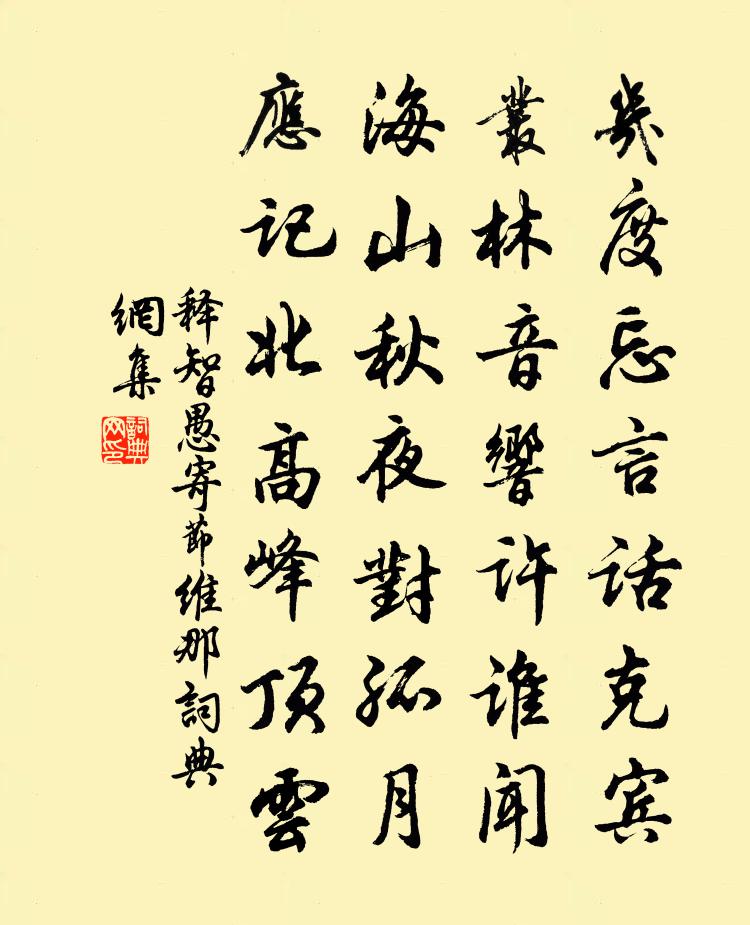 幾度忘言話克賓
叢林音響許誰聞
海山秋夜對孤月
應記北高峰頂雲
释智愚寄節維那詞典
網集
詞典网印